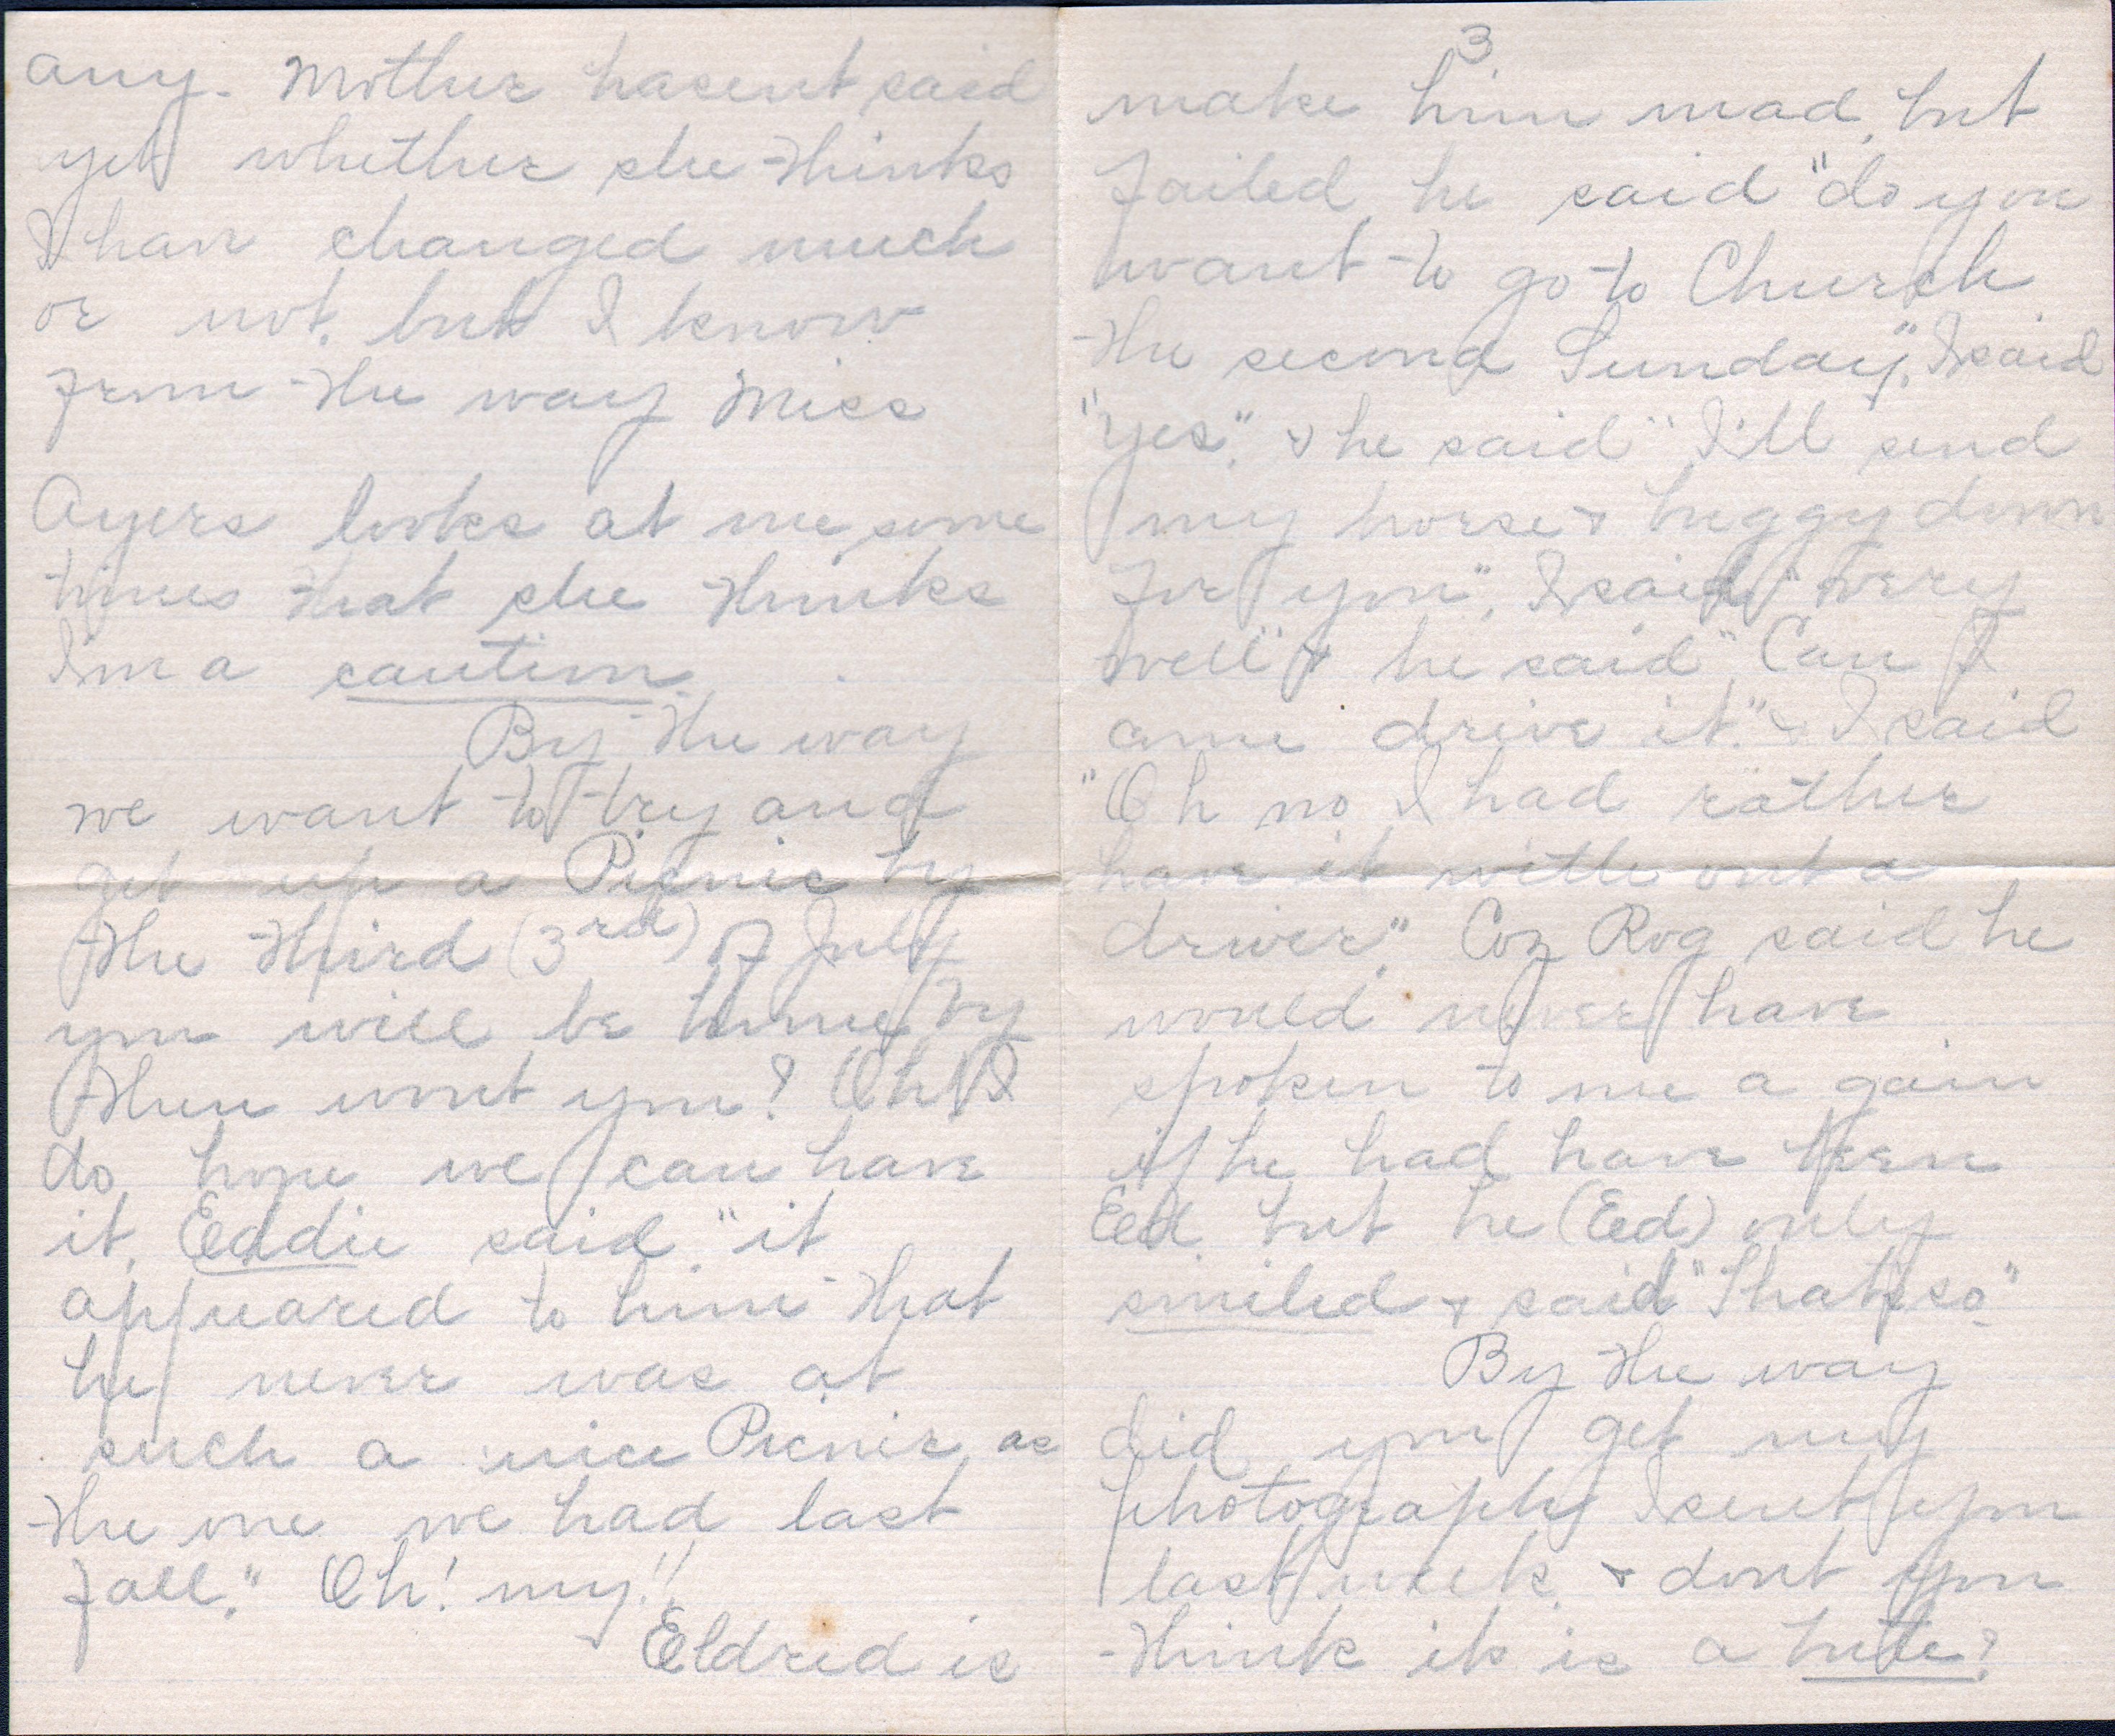 any. Mother hasent said
yet whether she thinks
I have changed much
or not, but I know
from the way Miss
Ayers looks at me some
times that she thinks
Im a caution.
By the way
we want to try and
get up a Picnic by
the third (3rd) of July
you will be home by
then wont you? Oh! I
do hope we can have
it, Eddie said "it
appeared to him that
he never was at
such a nice Picnic as
the one we had last
fall." Oh! my!!
Eldred is
3
make him mad, but
failed, he said "do you
want to go to Church
the second Sunday", I said
"yes". & he said "I'll send
my horse & buggy down
for you", I said "very
well" & he said "Can I
come drive it." & I said
"Oh no I had rather
have it with out a
driver." Coz Rog said he
would never have
spoken to me a gain
if he had have been
Eed. but he (Eed) only
smiled & said "Thats so."
By the way
did you get my
photograph I sent you
last week. & dont you
think its is a bute?